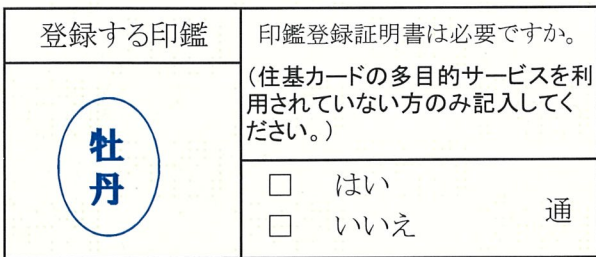 登録する印鑑
牡
丹
印鑑登録証明書は必要ですか。
(住基カードの多目的サービスを利
用されていない方のみ記入してく
ださい。)
□ はい
□ いいえ 通